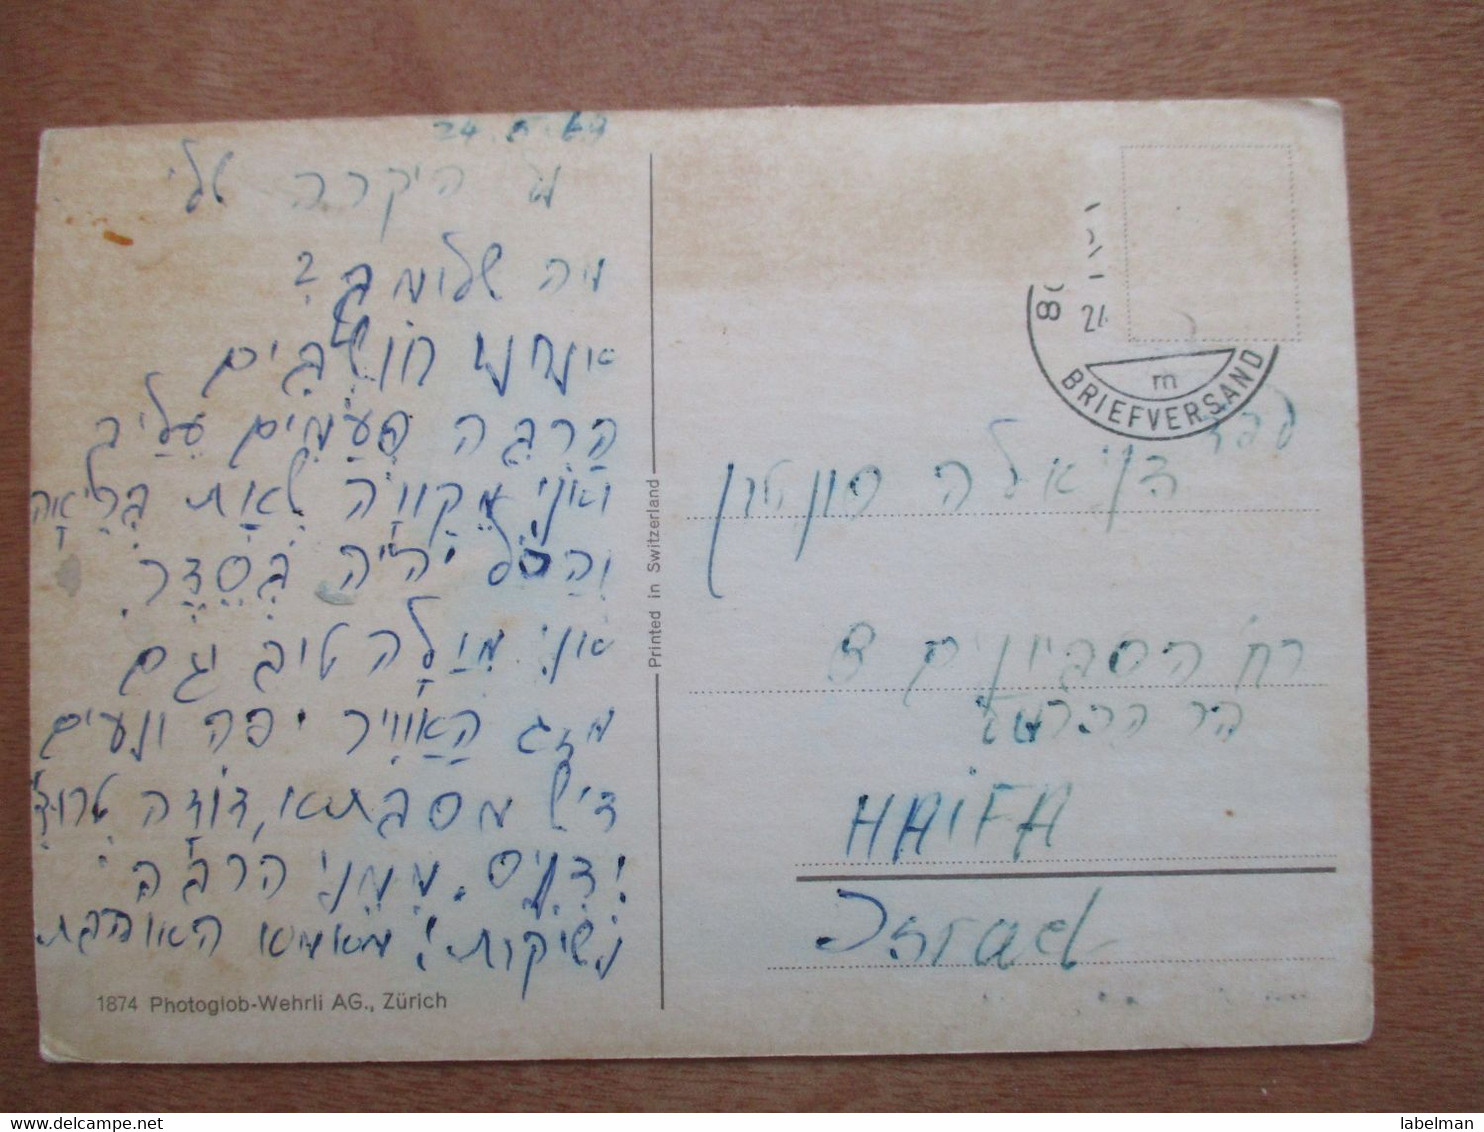 24.5.69
היקרה שלי
מה שלומך?
אנחנו חוֹשְׁבִים
הַרְבֵּה פְּעָמִים עָלַיִךְ
וַאֲנִי מְקַוָּוה שֶׁאַתְּ בְּרִיאָה
וְהַכֹּל יִהְיֶה בְּסֵדֶר.
אֲנִי מְבַלָּה טוב וגם
מזג הָאֲוִויר יפה ונעים
ד״ש מסבתא, דּוֹדָה טְרוּדִי
וְדֶנִיס. מִמֶּנִּי הַרְבֵּה
נְשִׁיקוֹת! מאמא האוהבת
1874 Photoglob-Wehrli AG., Zürich
Printed in Switzerland
24
BRIEFVERSAND
m
לכבוד
דניאלה
רח' הסביונים 3
הר הכרמל
HAiFA
Israel
labelman
www.delcampe.net